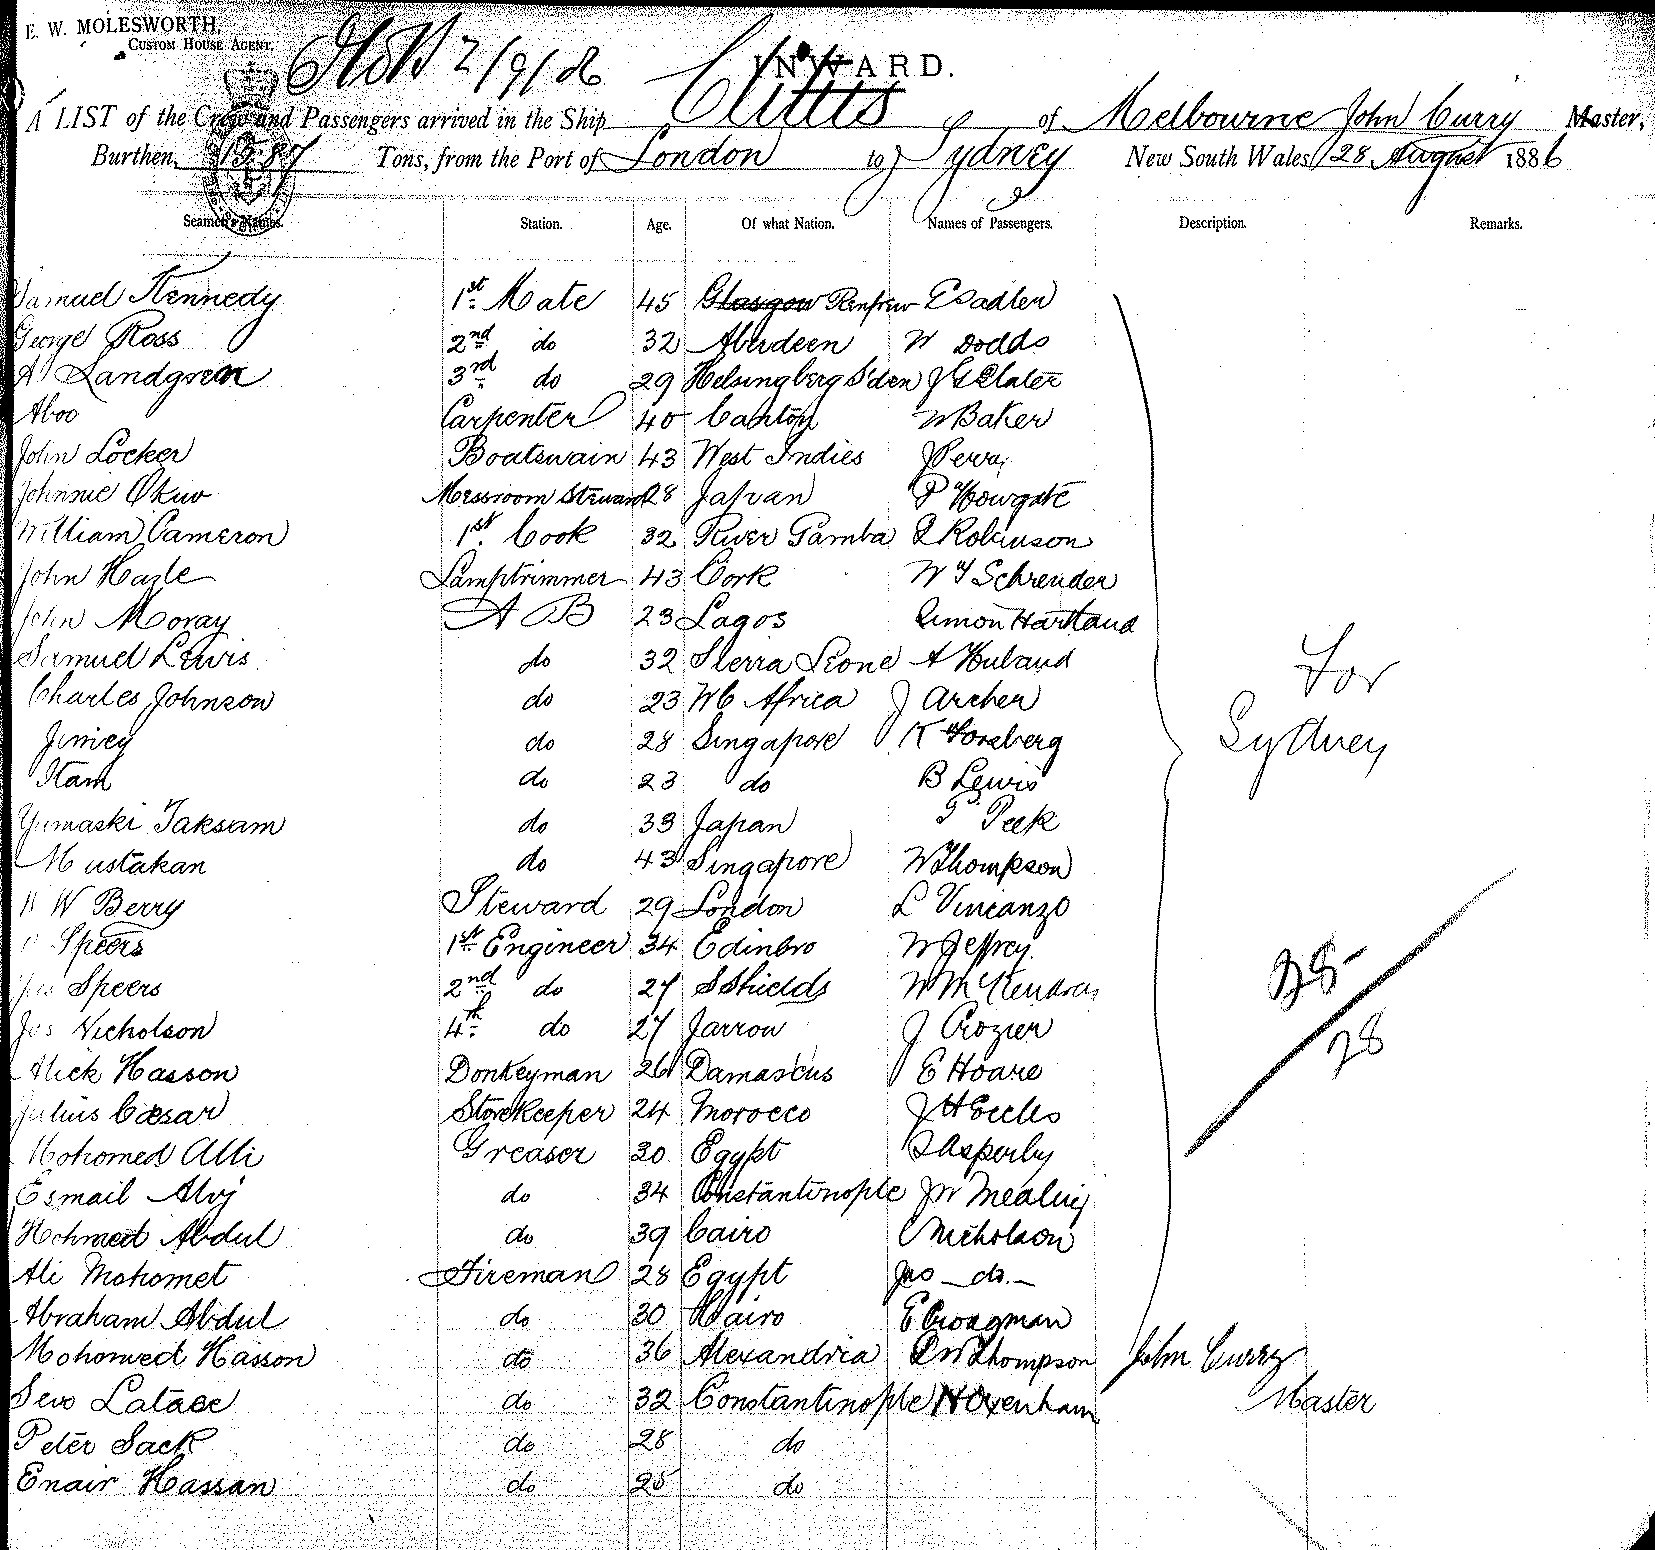 E. W. MOLESWORTH,
CUSTOM HOUSE AGENT.
2/9/86
INWARD.
A LIST of the Crew and Passengers arrived in the Ship of Melbourne John Curry Master,
Burthen, 1587 Tons, from the Port of London to Sydney New South Wales, 28 August 1886
Seamen's Names. Station. Age. Of what Nation. Names of Passengers. Description. Remarks.
Samuel Kennedy 1st Mate 45 Glasgow Renfrew E Sadler
George Ross 2nd do 32 Aberdeen W Dodds
A Landgren 3rd do 29 Helsingberg S'den J G Slater
Aboo Carpenter 40 Canton W Baker
John Locker Boatswain 43 West Indies J
Johnnie Okuo Messroom Steward 28 Japan P Howgate
William Cameron 1st Cook 32 River Gamba Robinson
John Hazle Lamptrimmer 43 Cork W Schrender
John Moray A B 23 Lagos Simon Hartland
Samuel Lewis do 32 Sierra Leone A
Charles Johnson do 23 W C Africa J Archer
Jimiey do 28 Singapore K Forsberg
Itam do 23 do B Lewis
Yumaski Taksam do 33 Japan Peek
Mustakan do 43 Singapore W Thompson
W Berry Steward 29 London L Vincanzo
Speers 1st Engineer 34 Edinbro W Jeffrey
Speers 2nd do 27 S Shields W
Jos Nicholson 4th do 27 Jarrow J Crozier
Alick Hasson Donkeyman 26 Damascus E Hoare
Julius Cæsar Storekeeper 24 Morocco J H Eccles
Mohomed Alli Greaser 30 Egypt Asperby
Esmail Alvj do 34 Constantinople J W
Hohmed Abdul do 39 Cairo Nicholson
Ali Mohomet Fireman 28 Egypt Jno do.
Abraham Abdul do 30 Kairo E Croagman
Mohomed Hasson do 36 Alexandria Thompson
Sevo Latace do 32 Constantinople H Oxenham
Peter Sack do 28 do
Enair Hassan do 25 do
For
Sydney
28
John Curry
Master